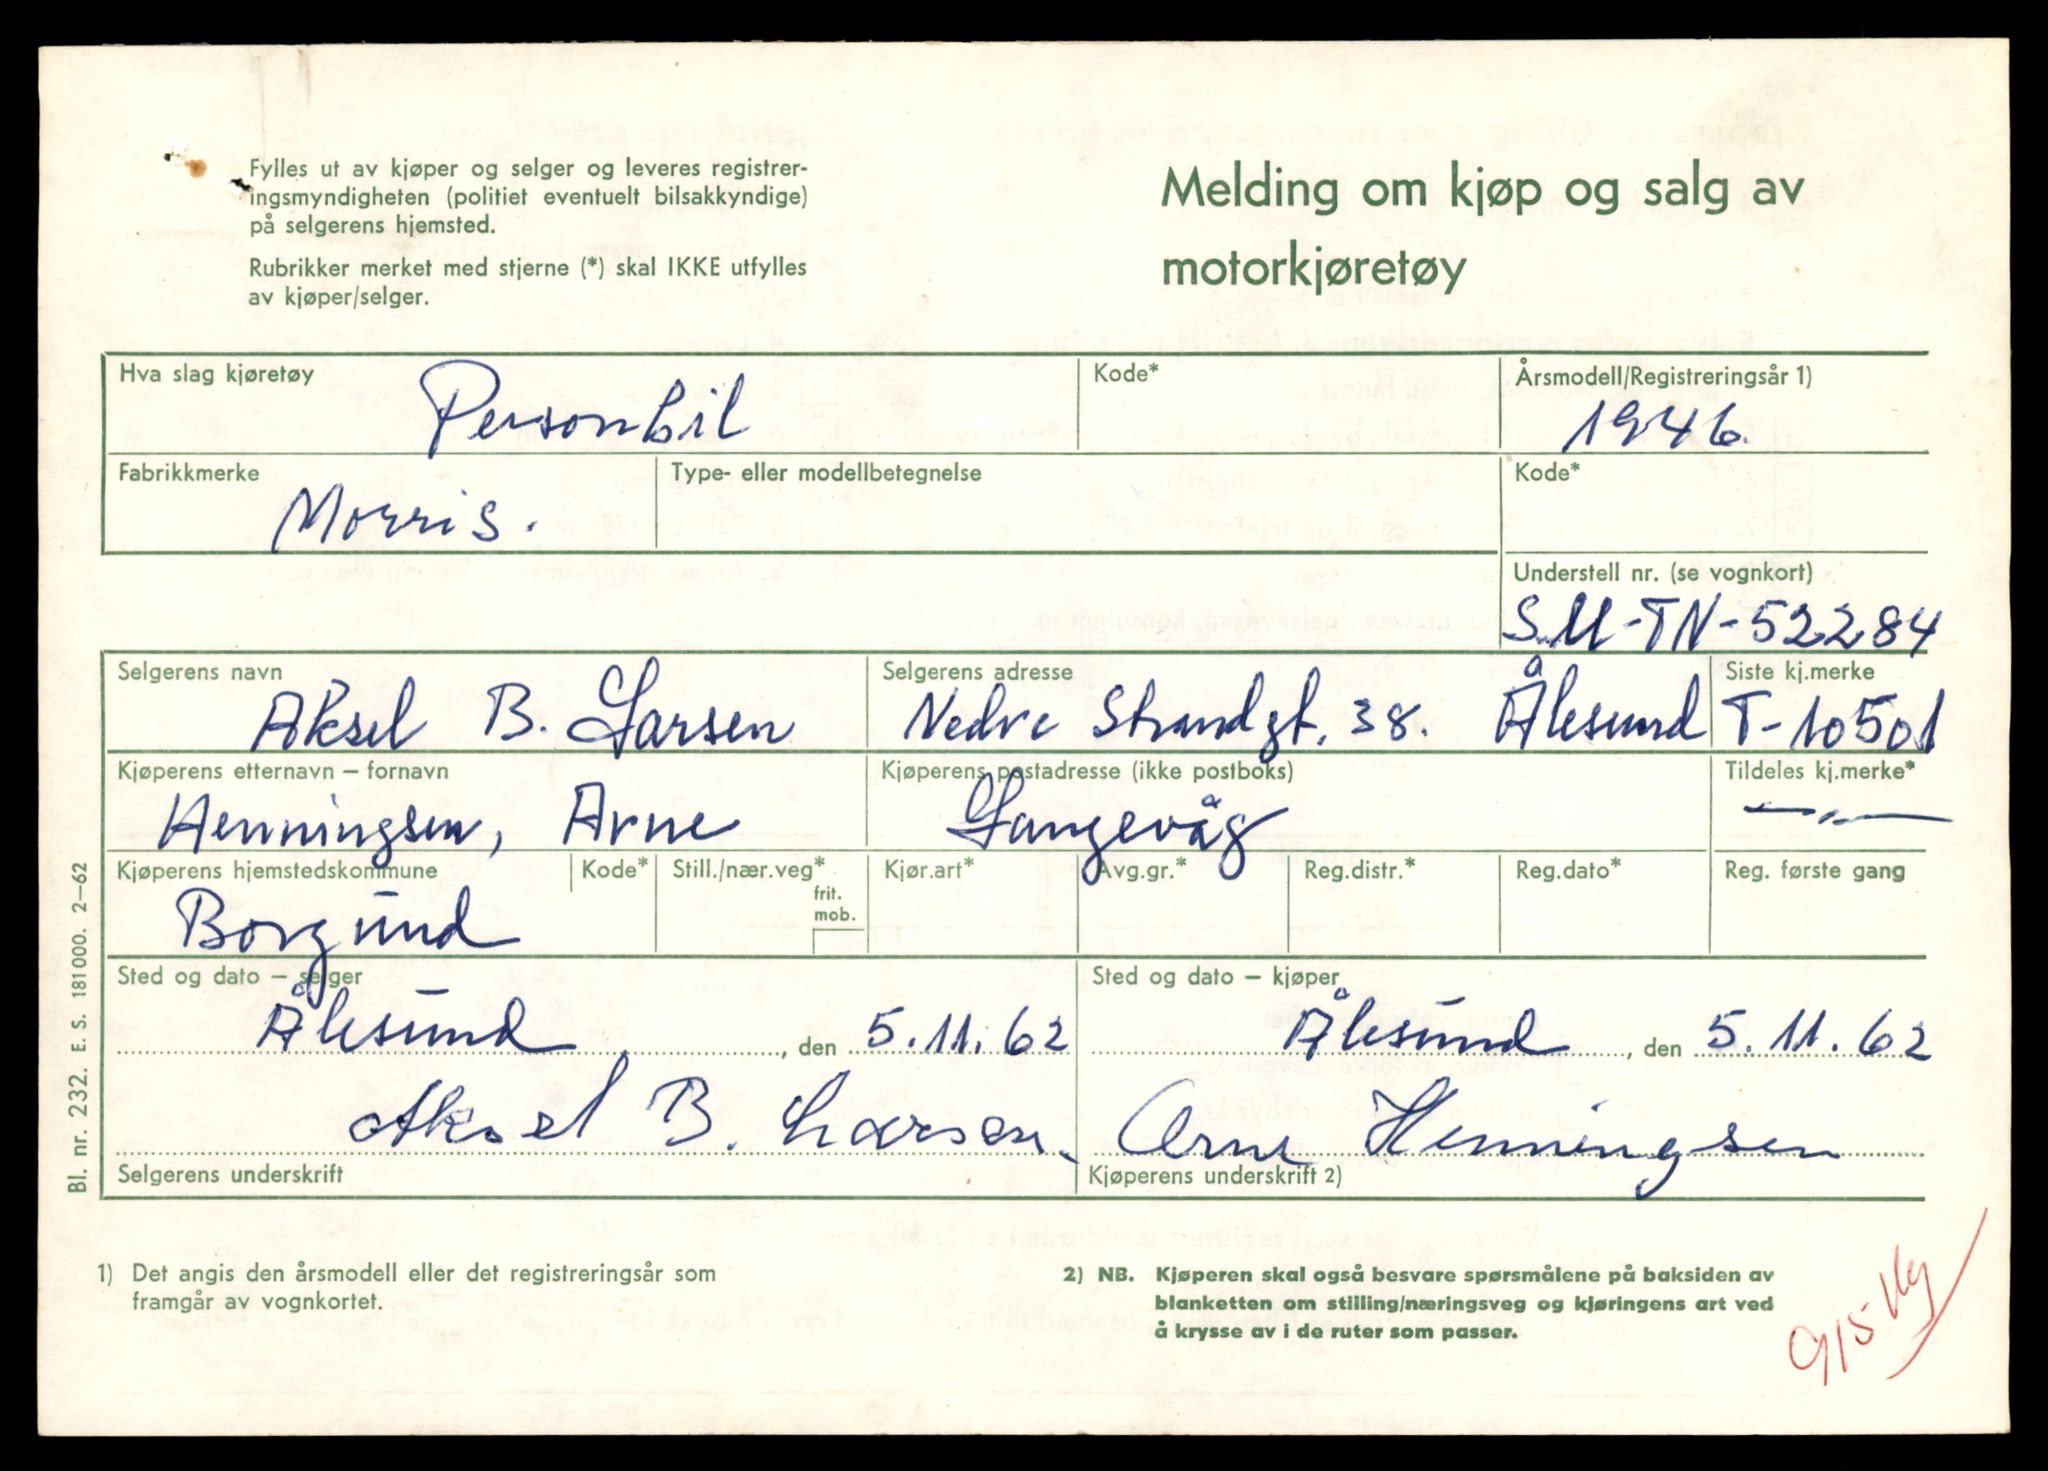 Fylles ut av kjøper og selger og leveres registrer-
ingsmyndigheten (politiet eventuelt bilsakkyndige)
på selgerens hjemsted.
Rubrikker merket med stjerne (*) skal IKKE utfylles
av kjøper/selger.
Melding om kjøp og salg av
motorkjøretøy
Hva slag kjøretøy
Personbil
Kode*
Årsmodell/Registreringsår 1)
1946.
Fabrikkmerke
Morris.
Type- eller modellbetegnelse
Kode*
Understell nr. (se vognkort)
S.M-TN-52284
Selgerens navn
Aksel B. Larsen
Selgerens adresse
Nedre Strandgt. 38. Ålesund
Siste kj.merke
T-10501
Kjøperens etternavn – fornavn
Henningsen, Arne
Kjøperens postadresse (ikke postboks)
Langevåg
Tildeles kj.merke*
—„—
Kjøperens hjemstedskommune
Borgund
Kode*
Still./nær.veg*
frit.
mob.
Kjør.art*
Avg.gr.*
Reg.distr.*
Reg.dato*
Reg. første gang
Sted og dato – selger
Ålesund, den 5.11.62
Sted og dato – kjøper
Ålesund, den 5.11.62
Aksel B. Larsen.
Selgerens underskrift
Arne Henningsen
Kjøperens underskrift 2)
Bl. nr. 232. E. S. 181000. 2–62
1) Det angis den årsmodell eller det registreringsår som
framgår av vognkortet.
2) NB. Kjøperen skal også besvare spørsmålene på baksiden av
blanketten om stilling/næringsveg og kjøringens art ved
å krysse av i de ruter som passer.
915 kg